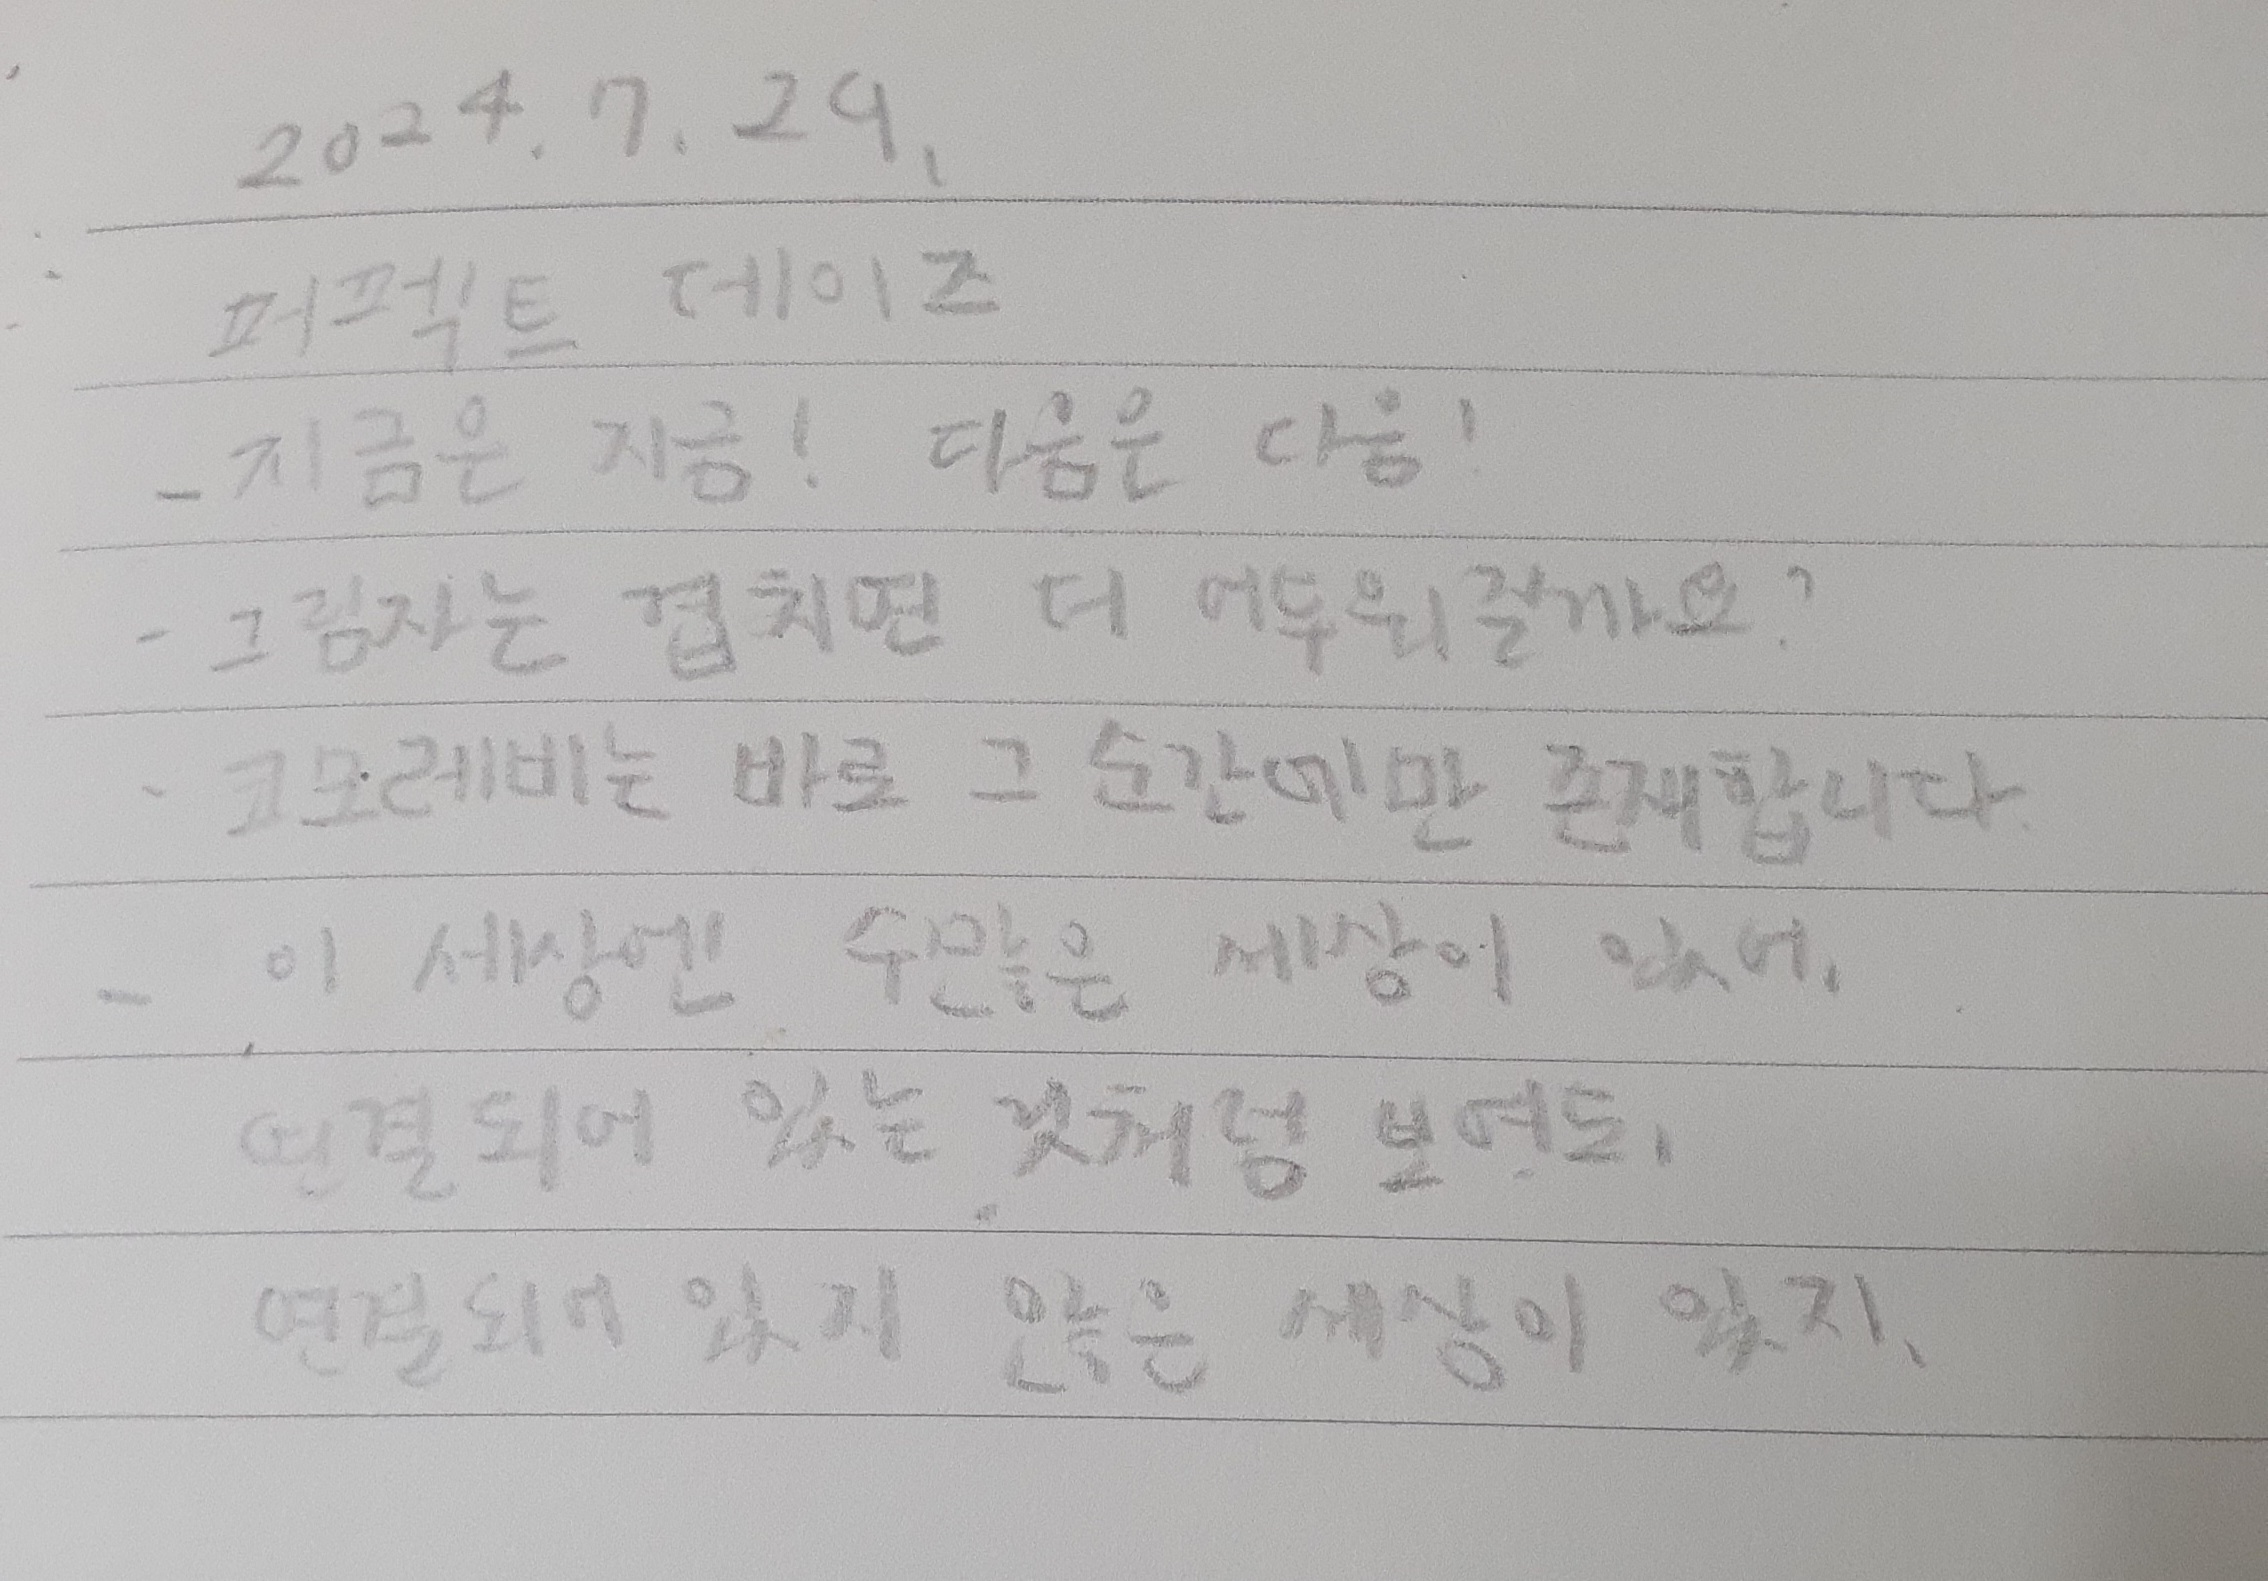 2024. 7. 29.
퍼펙트 데이즈
- 지금은 지금! 다음은 다음!
- 그림자는 겹치면 더 어두워질까요?
- 코모레비는 바로 그 순간에만 존재합니다.
- 이 세상엔 수많은 세상이 있어.
연결되어 있는 것처럼 보여도,
연결되어 있지 않은 세상이 있지.